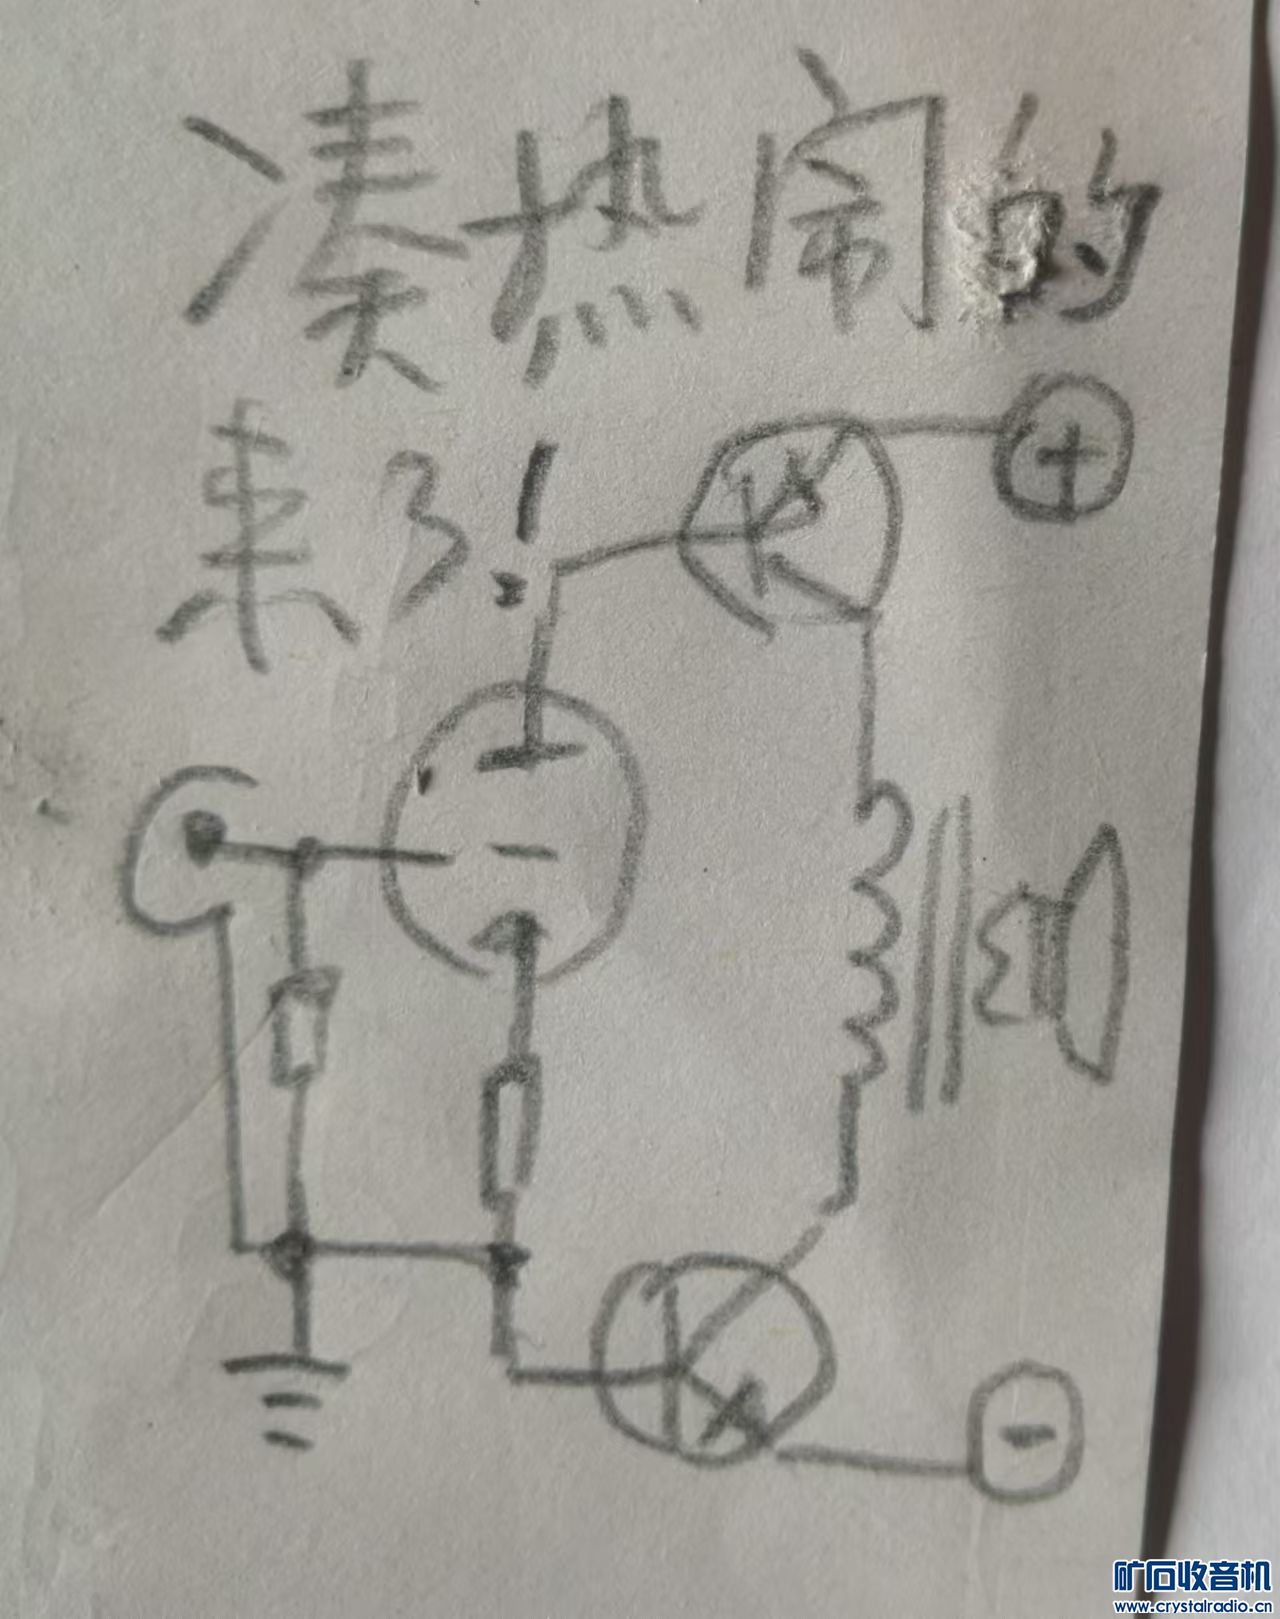 凑热闹的
来了!
+
-
矿石收音机
www.crystalradio.cn